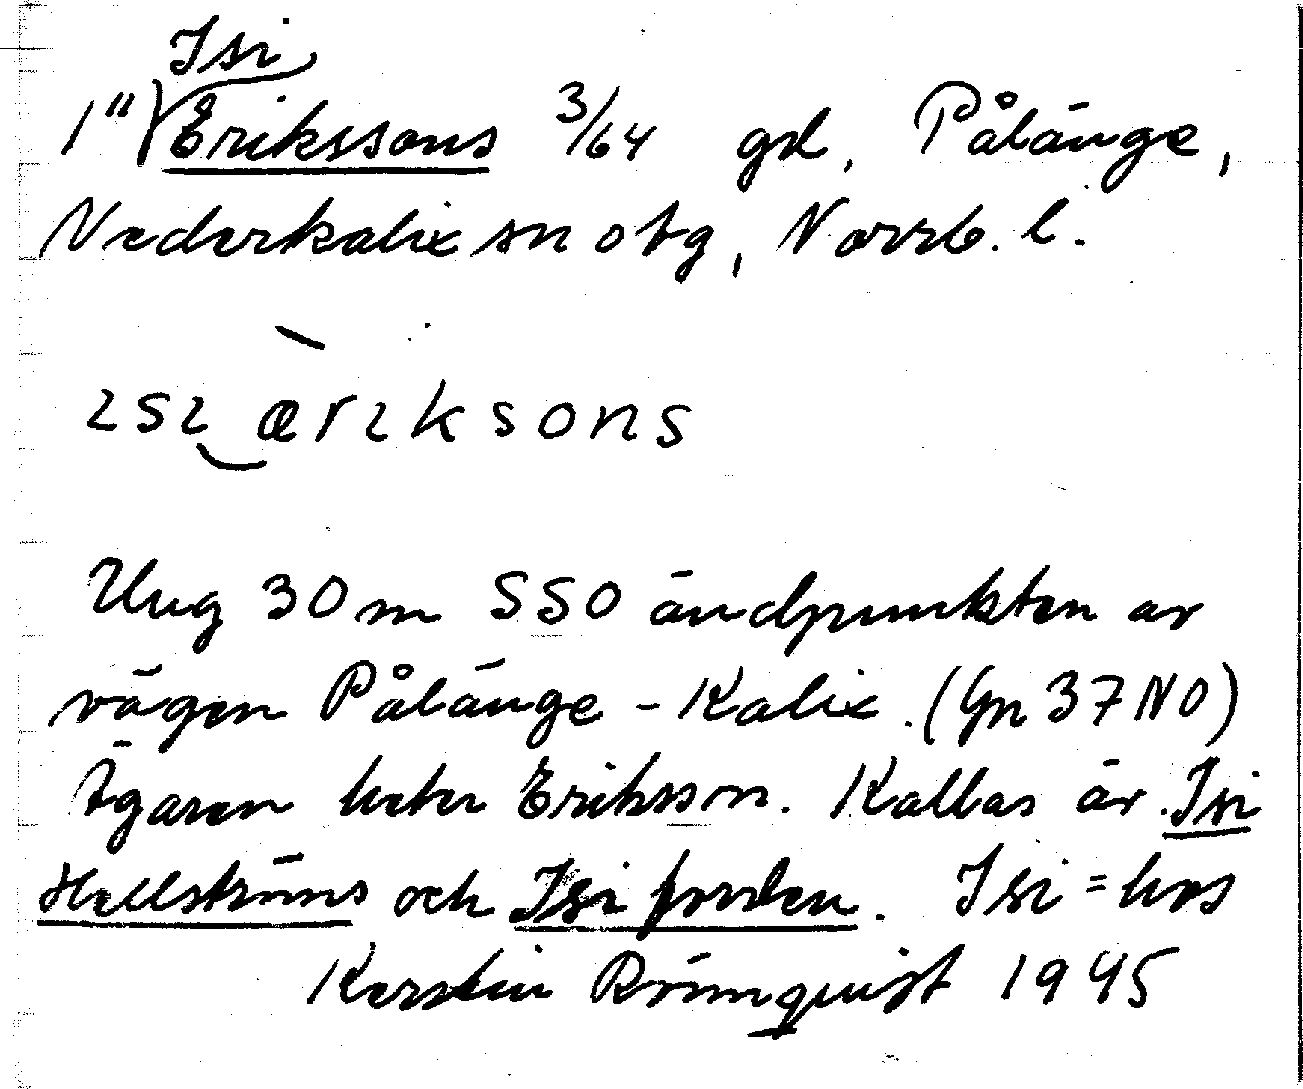 Isi
1" Erikssons 3/64 gd, Pålänge,
Nederkalix sn otg, Norrb. l.
ısı ‿ær̀ıksons
Ung 30 m SSO ändpunkten av
vägen Pålänge - Kalix. (Gn 37 NO)
Ägaren heter Eriksson. Kallas är Isi
Hellströms och Isi forsten. Isi = hos
Kerstin Römquist 1945